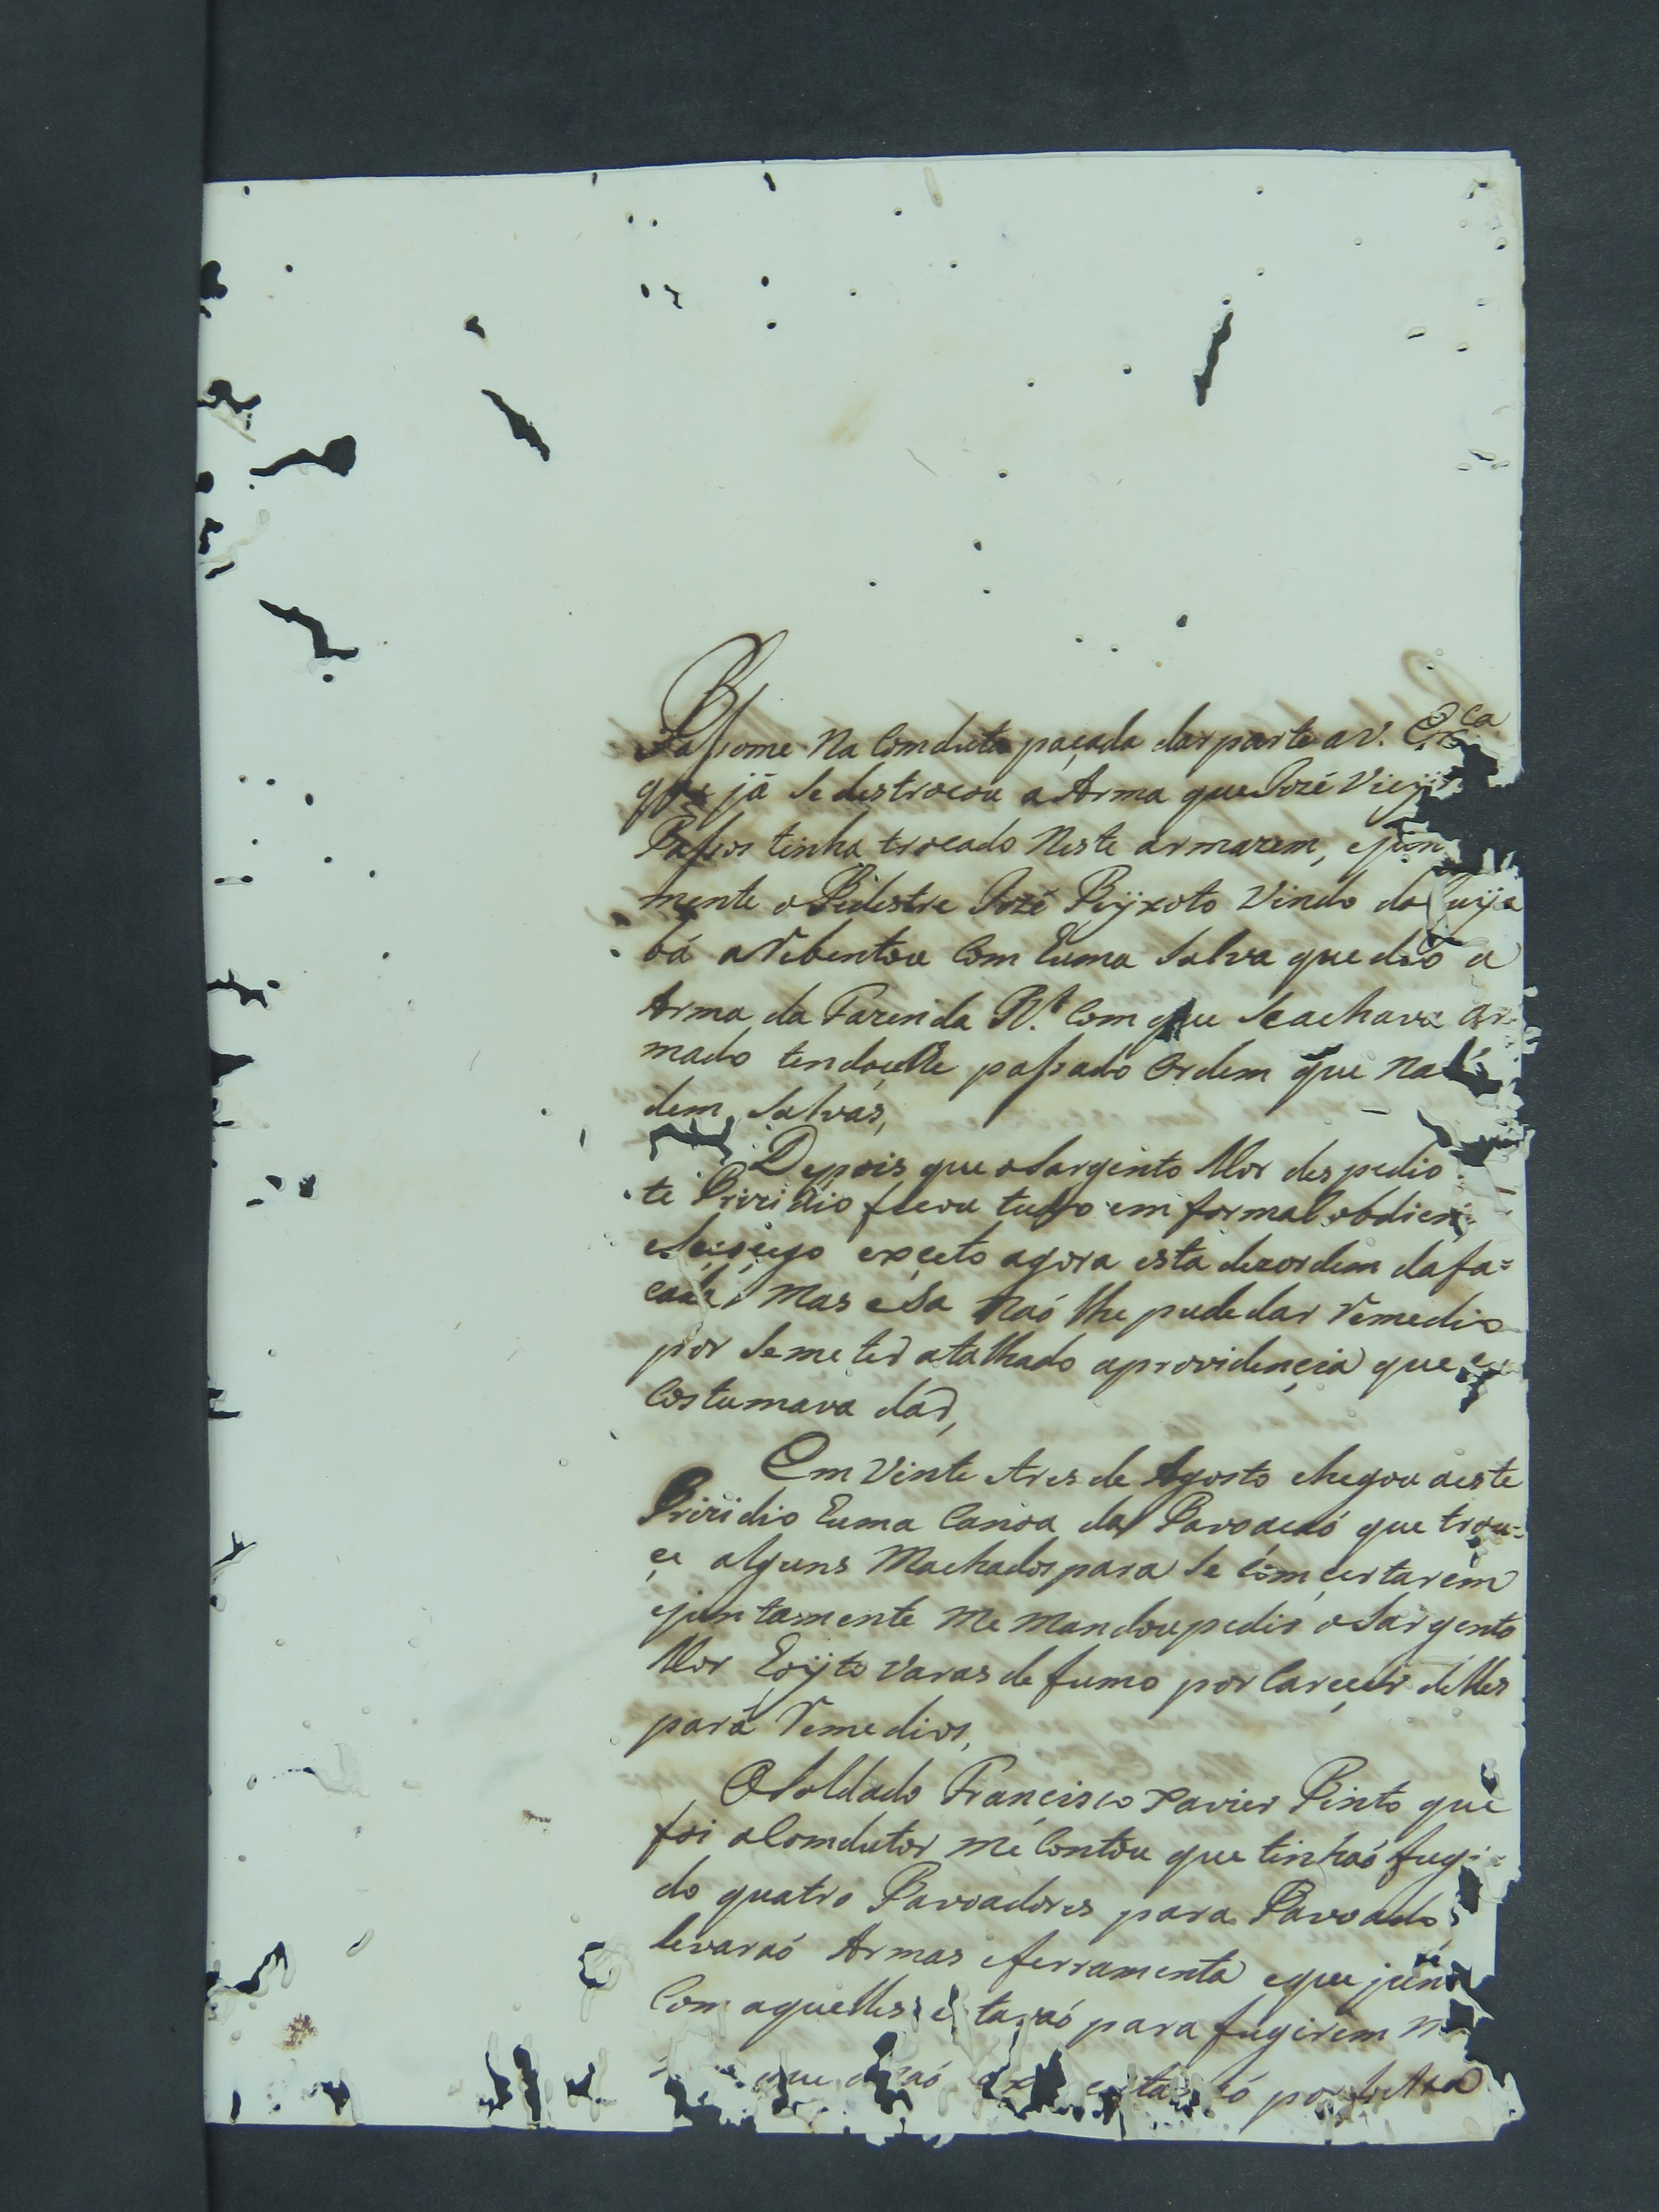 Paſsome na Comduta paçada dar parte a V. Ex.ca
que já se destrocou a Arma que Jozé Vieyr
Paſsos tinha trocado neste armazem, e jun
mente o Pedestre Jozé Peyxoto vindo do Cuya
bá arebentou Com huma salva que deo a
Arma da Fazenda R.l Com que se achava ar
mado tendoçelhe paſsado Ordem que não
dem salvas,
Depois que o Sargento Mor despedio
te Prizidio ficou tudo em formal obdien
e Seçoçego exçeto agora esta dezordem da fa=
cada, mas esa não lhe pude dar remedio
por se me ter atalhado a providençia que eu
Costumava dar,
Em vinte e tres de Agosto chegou a este
Prizidio huma Canoa da Pavoacaó que trou=
çe alguns Machados para se Comçertarem
e juntamente me mandou pedir o Sargento
Mor Eoyto varas de fumo por Careçer delles
para remedios,
O Soldado Francisco Xavier Pinto que
foi o Comdutor me Contou que tinhaó fugi=
do quatro Pavoadores para Pavoado,
levaraó Armas e ferramenta e que jun
Com aquelles estavaó para fugirem m
que por letra